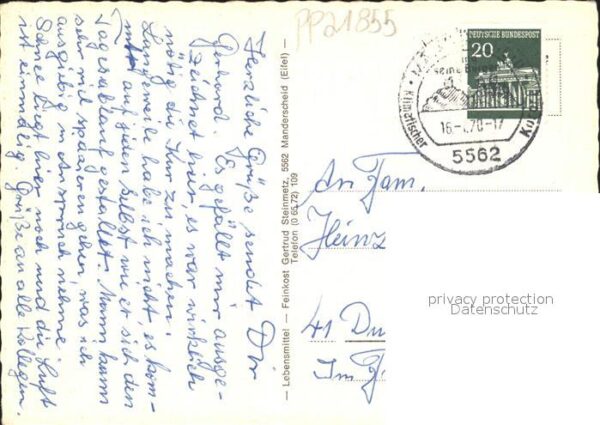 PP21855
Herzliche Grüße sendet Dir
Gerhard. Es gefällt mir ausge-
zeichnet hier, es war wirklich
nötig die Kur zu machen.
Langeweile habe ich nicht, es kom-
mt auf jeden selbst wie er sich den
Tagesablauf gestaltet. Man kann
sehr viel spazieren gehen, was ich
ausgiebig in Anspruch nehme.
Schnee liegt hier noch und die Luft
ist einmalig. Grüße an alle Kollegen.
— Lebensmittel — Feinkost Gertrud Steinmetz, 5562 Manderscheid (Eifel) —
Telefon (0 65 72) 109
DEUTSCHE BUNDESPOST
20
Klimatischer
16.-.70.-17
5562
An Fam.
Heinz
41 Du
Im
privacy protection
Datenschutz